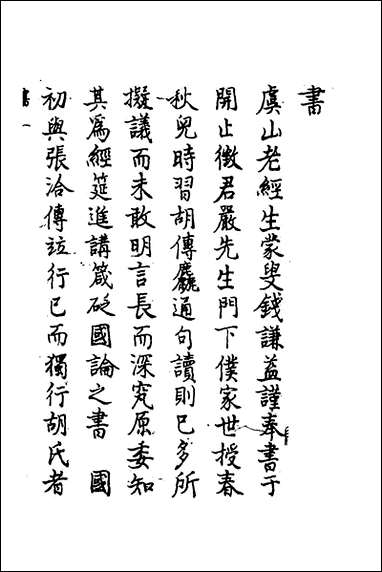 書
虞山老經生蒙叟錢謙益謹奉書于
開止徵君嚴先生門下僕家世授春
秋兒時習胡傳麤通句讀則已多所
擬議而未敢明言長而深究原委知
其爲經筵進講箴砭國論之書　國
初與張洽傳竝行已而獨行胡氏者
書一